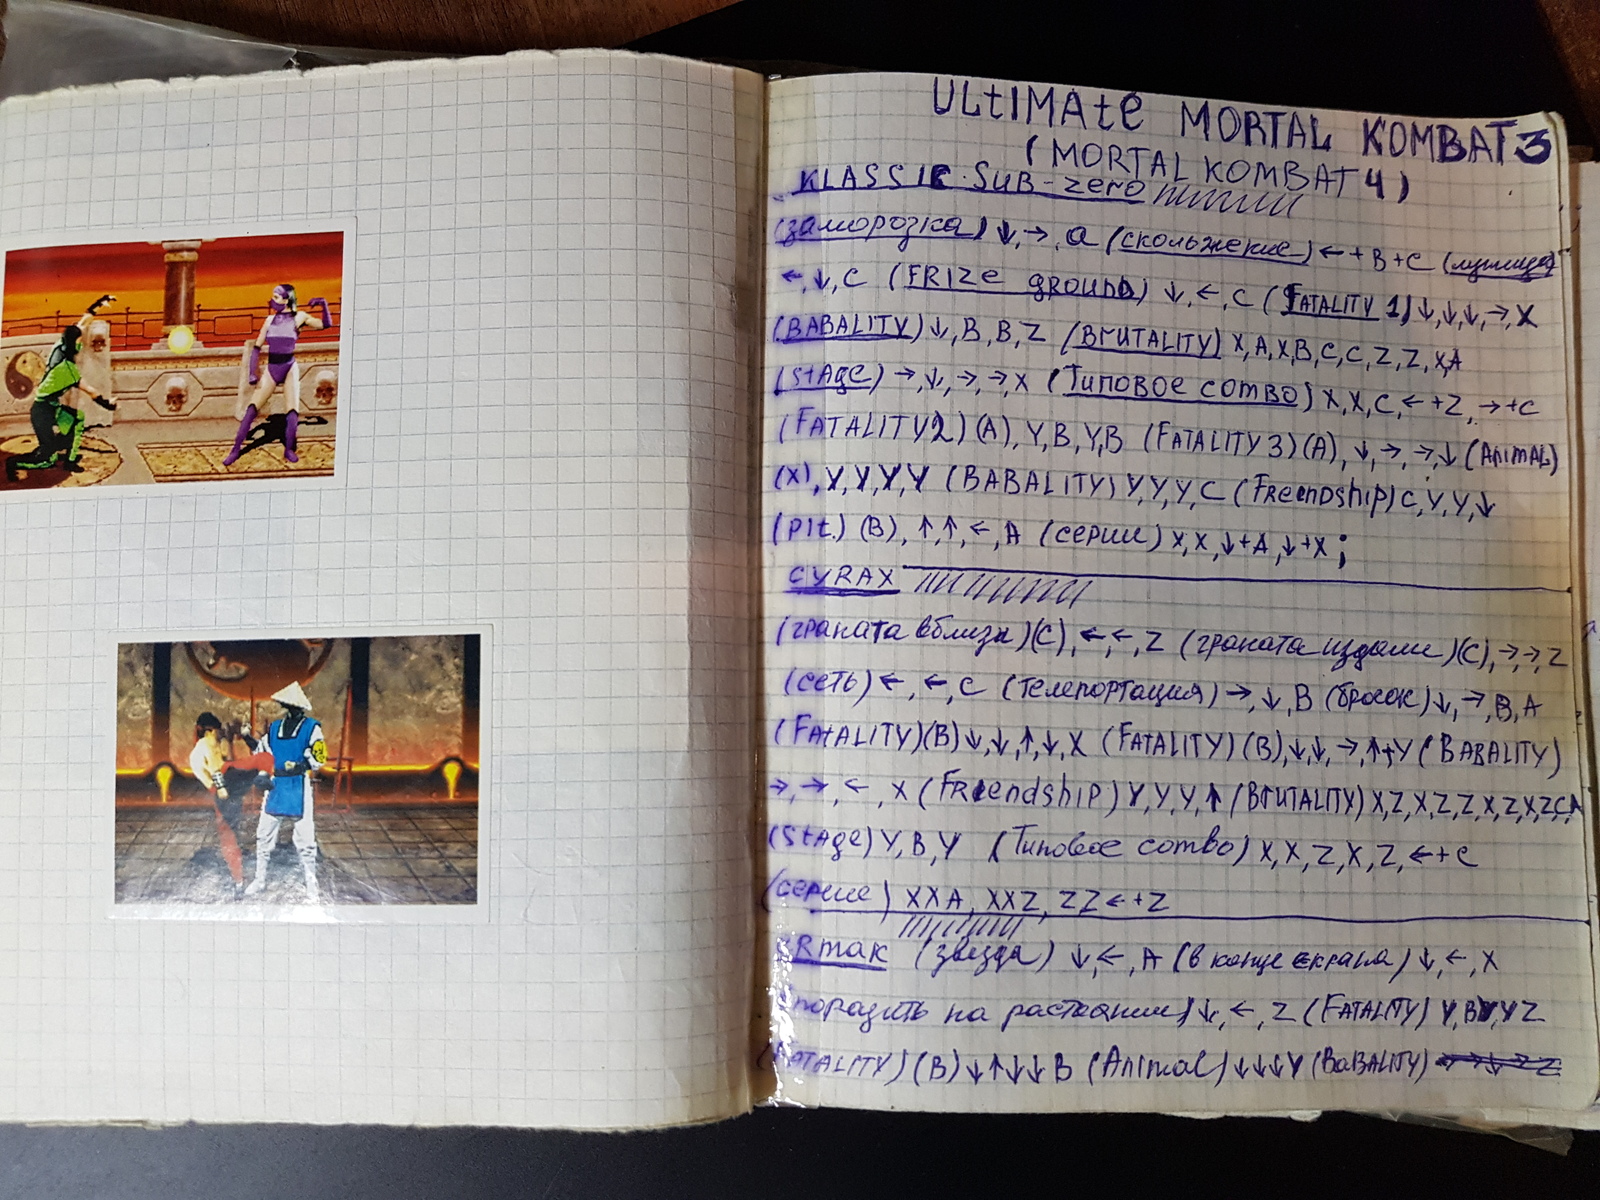 ULTIMATE MORTAL KOMBAT 3
( MORTAL KOMBAT 4 )
KLASSIC SUB-ZERO
(заморозка) ↓,→, a (скольжение) ←+B+C (лужица)
←,↓,C (FRIZE GROUND) ↓,←,C (FATALITY 1) ↓,↓,↓,→,X
(BABALITY) ↓,B,B,Z (BRUTALITY) X,A,X,B,C,C,Z,Z,X,A
(STAGE) →,↓,→,→,X (Типовое combo) X,X,C,←+Z,→+C
(FATALITY 2) (A), Y,B,Y,B (FATALITY 3) (A), ↓,→,→,↓ (ANIMAL)
(X), Y,Y,Y,Y (BABALITY) Y,Y,Y,C (FREENDSHIP) C,Y,Y,↓
(pit.) (B), ↑,↑,←,A (серии) X,X,↓+A,↓+X ;
CYRAX
(граната вблизи) (C), ←,←,Z (граната издали) (C), →,→,Z
(сеть) ←,←,C (Телепортация) →,↓,B (бросок) ↓,→,B,A
(FATALITY) (B) ↓,↓,↑,↓,X (FATALITY) (B) ↓,↓,→,↑+Y (BABALITY)
→,→,←,X (Friendship) Y,Y,Y,↑ (BRUTALITY) X,Z,X,Z,Z,X,Z,X,Z,C,A
(STAGE) Y,B,Y (Типовое combo) X,X,Z,X,Z,←+C
(серии) XXA, XXZ, ZZ←+Z
ERmak (звезда) ↓,←,A (в конце екрана) ↓,←,X
поразить на растеянии) ↓,←,Z (FATALITY) Y,B,Y,Y Z
(FATALITY) (B) ↓↑↓↓B (Animal) ↓↓↓Y (BABALITY)